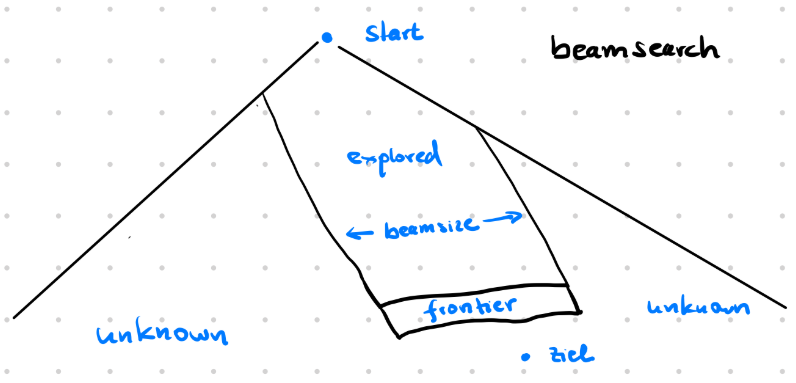 Start
beamsearch
explored
beamsize
frontier
unknown
unknown
ziel